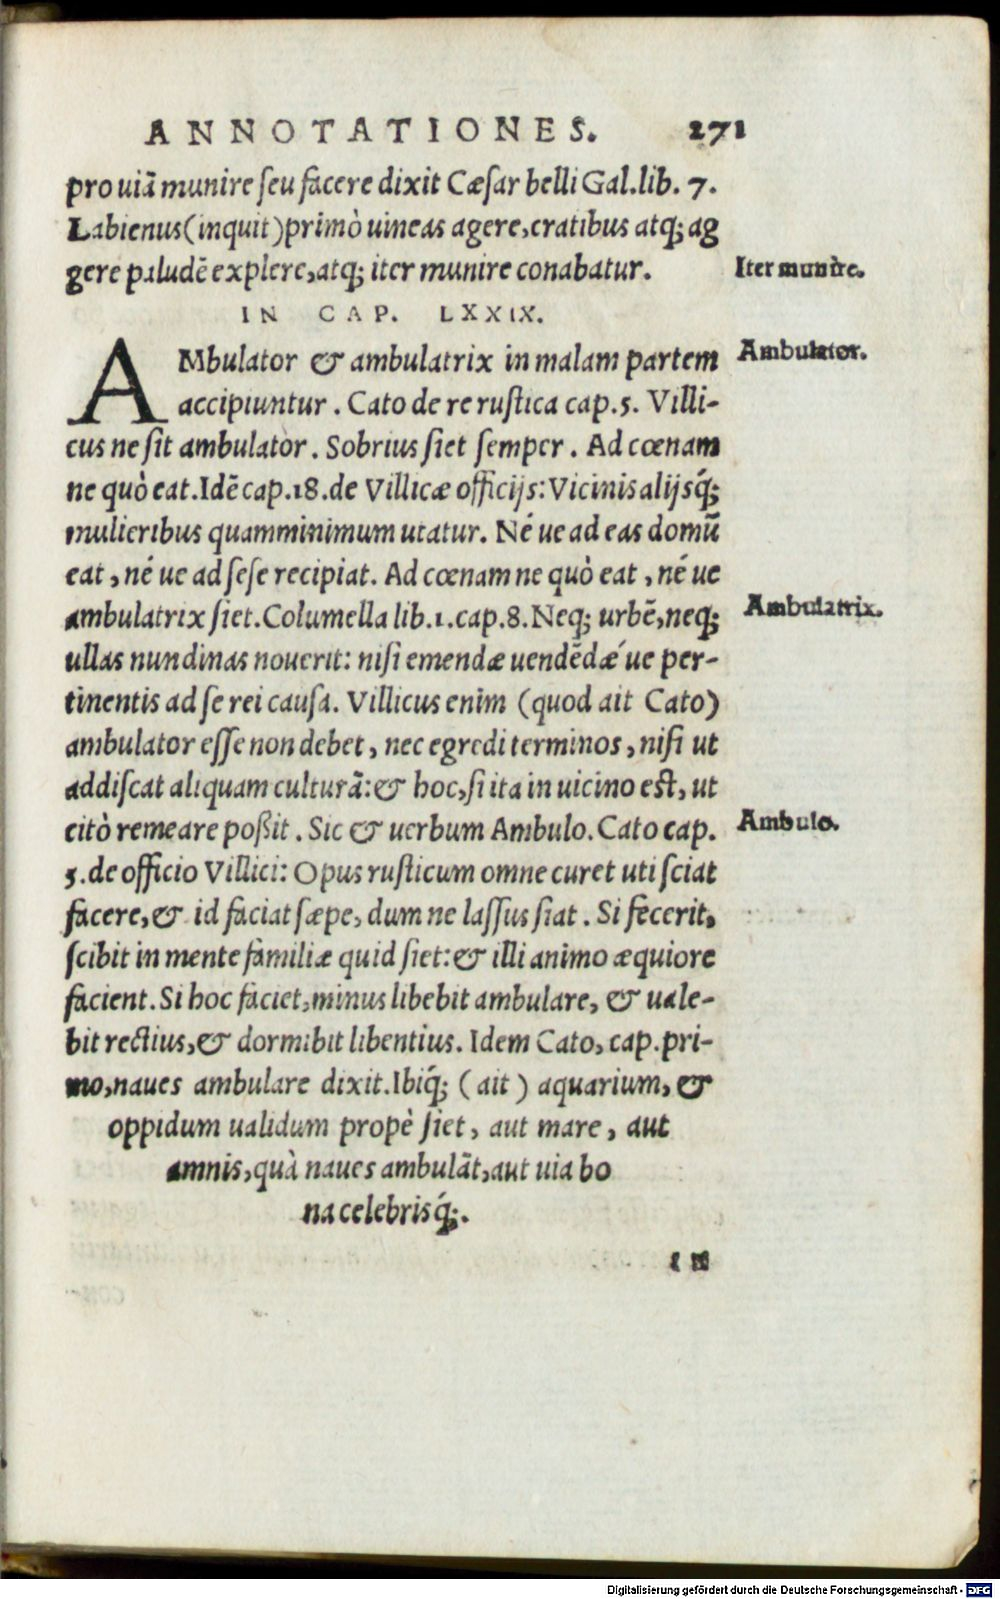 ANNOTATIONES. 271
pro uiã munire seu facere dixit Cæsar belli Gal.lib. 7.
Labienus(inquit)primò uineas agere,cratibus atq; ag
gere paludẽ explere,atq; iter munire conabatur.
Iter munire.
IN CAP. LXXIX.
AMbulator & ambulatrix in malam partem
Ambulator.
accipiuntur. Cato de re rustica cap.5. Villi-
cus ne sit ambulator. Sobrius siet semper. Ad cœnam
ne quò eat.Idẽ cap.18.de Villicæ officijs: Vicinis alijsq́;
mulieribus quamminimum utatur. Né ue ad eas domũ
eat, né ue ad sese recipiat. Ad cœnam ne quò eat, né ue
ambulatrix siet. Columella lib.1.cap.8. Neq; urbẽ,neq;
Ambulatrix.
ullas nundinas nouerit: nisi emendæ uendẽdǽ ue per-
tinentis ad se rei causa. Villicus enim (quod ait Cato)
ambulator esse non debet, nec egredi terminos, nisi ut
addiscat aliquam culturã: & hoc, si ita in uicino est, ut
citò remeare poßit. Sic & uerbum Ambulo. Cato cap.
Ambulo.
5.de officio Villici: Opus rusticum omne curet uti sciat
facere,& id faciat sæpe, dum ne lassus siat. Si fecerit,
scibit in mente familiæ quid siet: & illi animo æquiore
facient. Si hoc faciet, minus libebit ambulare, & uale-
bit rectius,& dormibit libentius. Idem Cato, cap.pri-
mo,naues ambulare dixit.Ibiq́; (ait) aquarium, &
oppidum ualidum propè siet, aut mare, aut
amnis,quà naues ambulãt,aut uia bo
na celebrisq́;.
IN
Digitalisierung gefördert durch die Deutsche Forschungsgemeinschaft - DFG